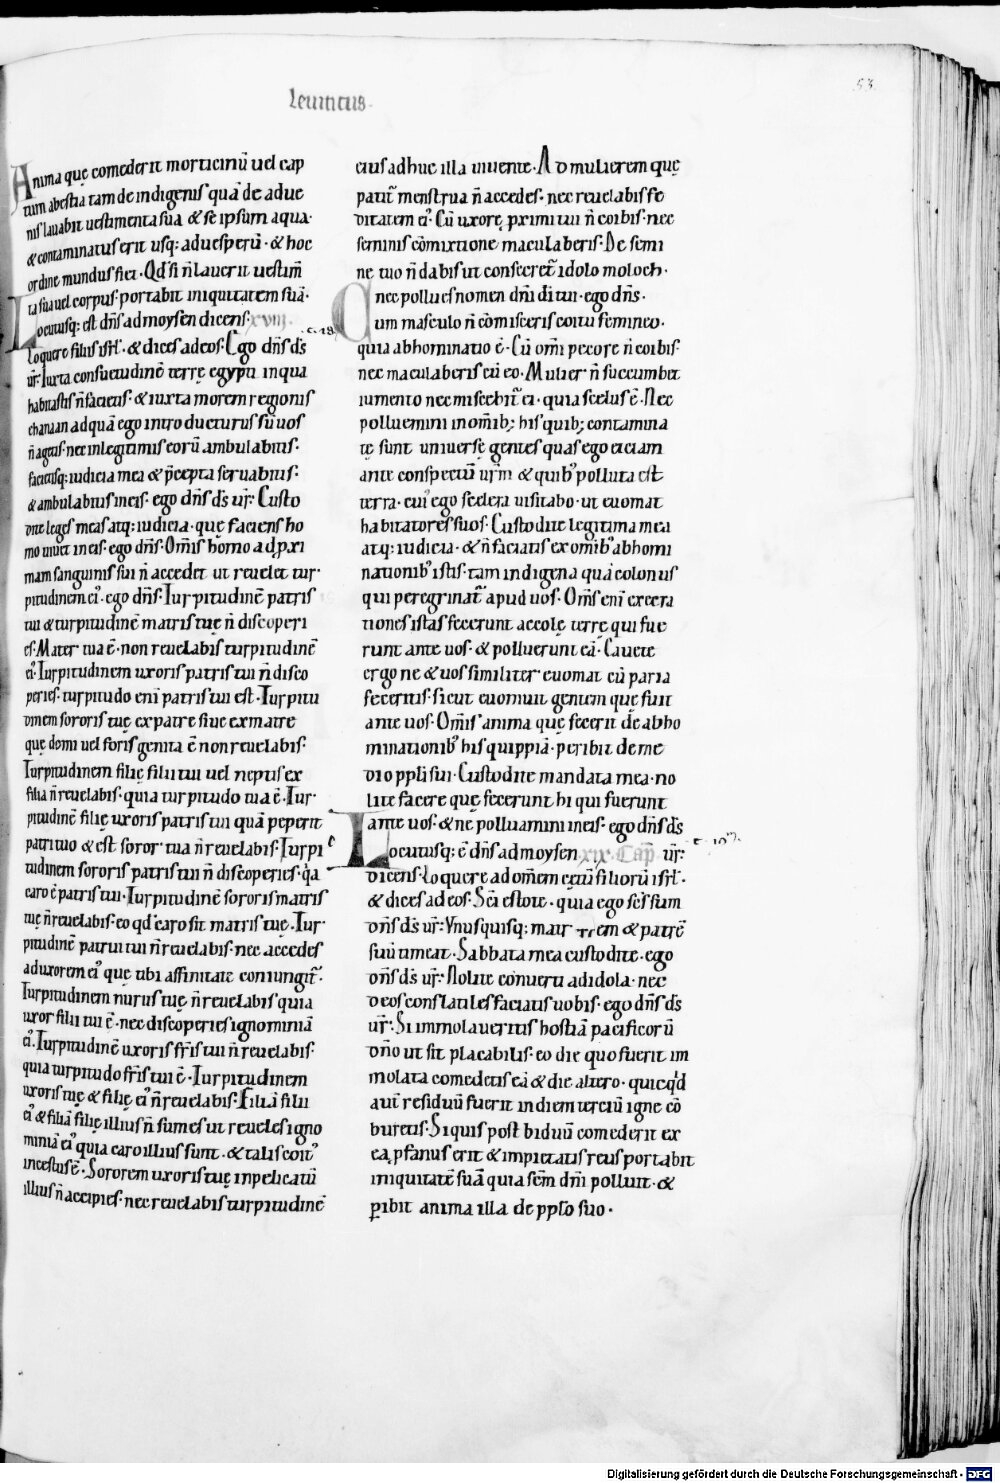 53
Leuiticus.
Anima quę comederit morticinū uel cap
tum a bestia tam de indigenis quā de adue
nis lauabit uestimenta sua & se ipsum aqua.
& contaminatus erit usq; ad uesperū. & hoc
ordine mundus fiet. Qd si ñ lauerit uestim̄
ta sua uel corpus. portabit iniquitatem suā.
Locutusq; est dn̄s ad moysen dicens. xviii.
c. 18.
Loquere filiis isrł. & dices ad eos. Ego dn̄s ds̄
ur̄. Iuxta consuetudinē terrę egypti in qua
habitastis ñ facietis. & iuxta morem regionis
chanaan ad quā ego introducturus sū uos
ñ agetis. nec in legitimis eorū ambulabitis.
facietisq; iudicia mea & p̄cepta seruabitis.
& ambulabitis in eis. ego dn̄s ds̄ ur̄. Custo
dite leges meas atq; iudicia. quę faciens ho
mo uiuet in eis. ego dn̄s. Om̄is homo ad p̱xi
mam sanguinis sui ñ accedet ut reuelet tur.
pitudinem ei᾽. ego dn̄s. Turpitudinē patris
tui & turpitudinē matris tuę ñ discoperi
es. Mater tua ē. non reuelabis turpitudinē
ei᾽. Turpitudinem uxoris patris tui ñ disco
peries. turpitudo eni patris tui est. Turpitu
dinem sororis tuę ex patre siue ex matre
quę domi uel foris genita ē non reuelabis.
Turpitudinem filię filii tui uel neptis ex
filia ñ reuelabis. quia turpitudo tua ē. Tur.
pitudinē filię uxoris patris tui quā peperit
patri tuo & est soror tua ñ reuelabis. Turpi
tudinem sororis patris tui ñ discoperies. q̇a
caro ē patris tui. Turpitudinē sororis matris
tuę ñ reuelabis. eo qd caro sit matris tuę. Tur.
pitudinē patrui tui ñ reuelabis. nec accedes
ad uxorem ei᾽ quę tibi affinitate coniungit᷑.
Turpitudinem nurus tuę ñ reuelabis quia
uxor filii tui ē. nec discoperies ignominiā
ei᾽. Turpitudinē uxoris fr̄is tui ñ reuelabis.
quia turpitudo fr̄is tui ē. Turpitudinem
uxoris tuę & filię ei᾽ ñ reuelabis. Filiā filii
ei᾽ & filiā filię illius ñ sumes ut reueles igno
miniā ei᾽ quia caro illius sunt. & talis coit᾽
incestus ē. Sororem uxoris tuę in pelicatū
illius ñ accipies. nec reuelabis turpitudinē
eius adhuc illa uiuente. Ad mulierem quę
patit᷑ menstrua ñ accedes. nec reuelabis fe
ditatem ei᾽. Cū uxorę p̱ximi tui ñ coibis. nec
seminis cōmixtione maculaberis. De semi
ne tuo ñ dabis ut consecret᷑ idolo moloch.
nec pollues nomen dn̄i di tui. ego dn̄s.
Cum masculo ñ cōmisceris coitu femineo.
quia abhominatio ē. Cū om̄i pecore ñ coibis.
nec maculaberis cū eo. Mulier ñ succumbet
iumento nec miscebit᷑ ei. quia scelus ē. Nec
polluemini in om̄ib; his quib; contamina
tę sunt uniuersę gentes quas ego eiciam
ante conspectū ur̄m & quib᾽ polluta est
terra. cui᾽ ego scelera uisitabo. ut euomat
habitatores suos. Custodite legitima mea
atq; iudicia. & ñ faciatis ex om̄ib᾽ abhomi
nationib᾽ istis. tam indigena quā colonus
qui peregrinat᷑ apud uos. Om̄s eni execra
tiones istas fecerunt accolę terrę qui fue
runt ante uos. & polluerunt eā. Cauete
ergo ne & uos similiter euomat cū paria
feceritis. sicut euomuit gentem quę fuit
ante uos. Om̄is anima quę fecerit de abho
minationib᾽ his quippiā. peribit de me
dio pp̄li sui. Custodite mandata mea. no
lite facere quę fecerunt hi qui fuerunt
ante uos. & ne polluamini in eis. ego dn̄s ds̄
Locutusq; ē dn̄s ad moysen xix. Cap̄ ur̄.
c. 19.
dicens. Loquere ad om̄em cętū filiorū isrł.
& dices ad eos. Sc̄i estote. quia ego sc̄s sum
dn̄s ds̄ ur̄. Vnusquisq; matrem & patrē
suū timeat. Sabbata mea custodite. ego
dn̄s ds̄ ur̄. Nolite cōuerti ad idola. nec
deos conflatiles faciatis uobis. ego dn̄s ds̄
ur̄. Si immolaueritis hostiā pacificorū
dn̄o ut sit placabilis. eo die quo fuerit im
molata comedetis eā & die altero. quicq̇d
aut̄ residuū fuerit in diem terciū igne cō
buretis. Si quis post biduū comederit ex
ea, p̱fanus erit & impietatis reus portabit
iniquitatē suā quia sc̄m dn̄i polluit. &
p̱ibit anima illa de pp̄lo suo.
Digitalisierung gefördert durch die Deutsche Forschungsgemeinschaft - DFG